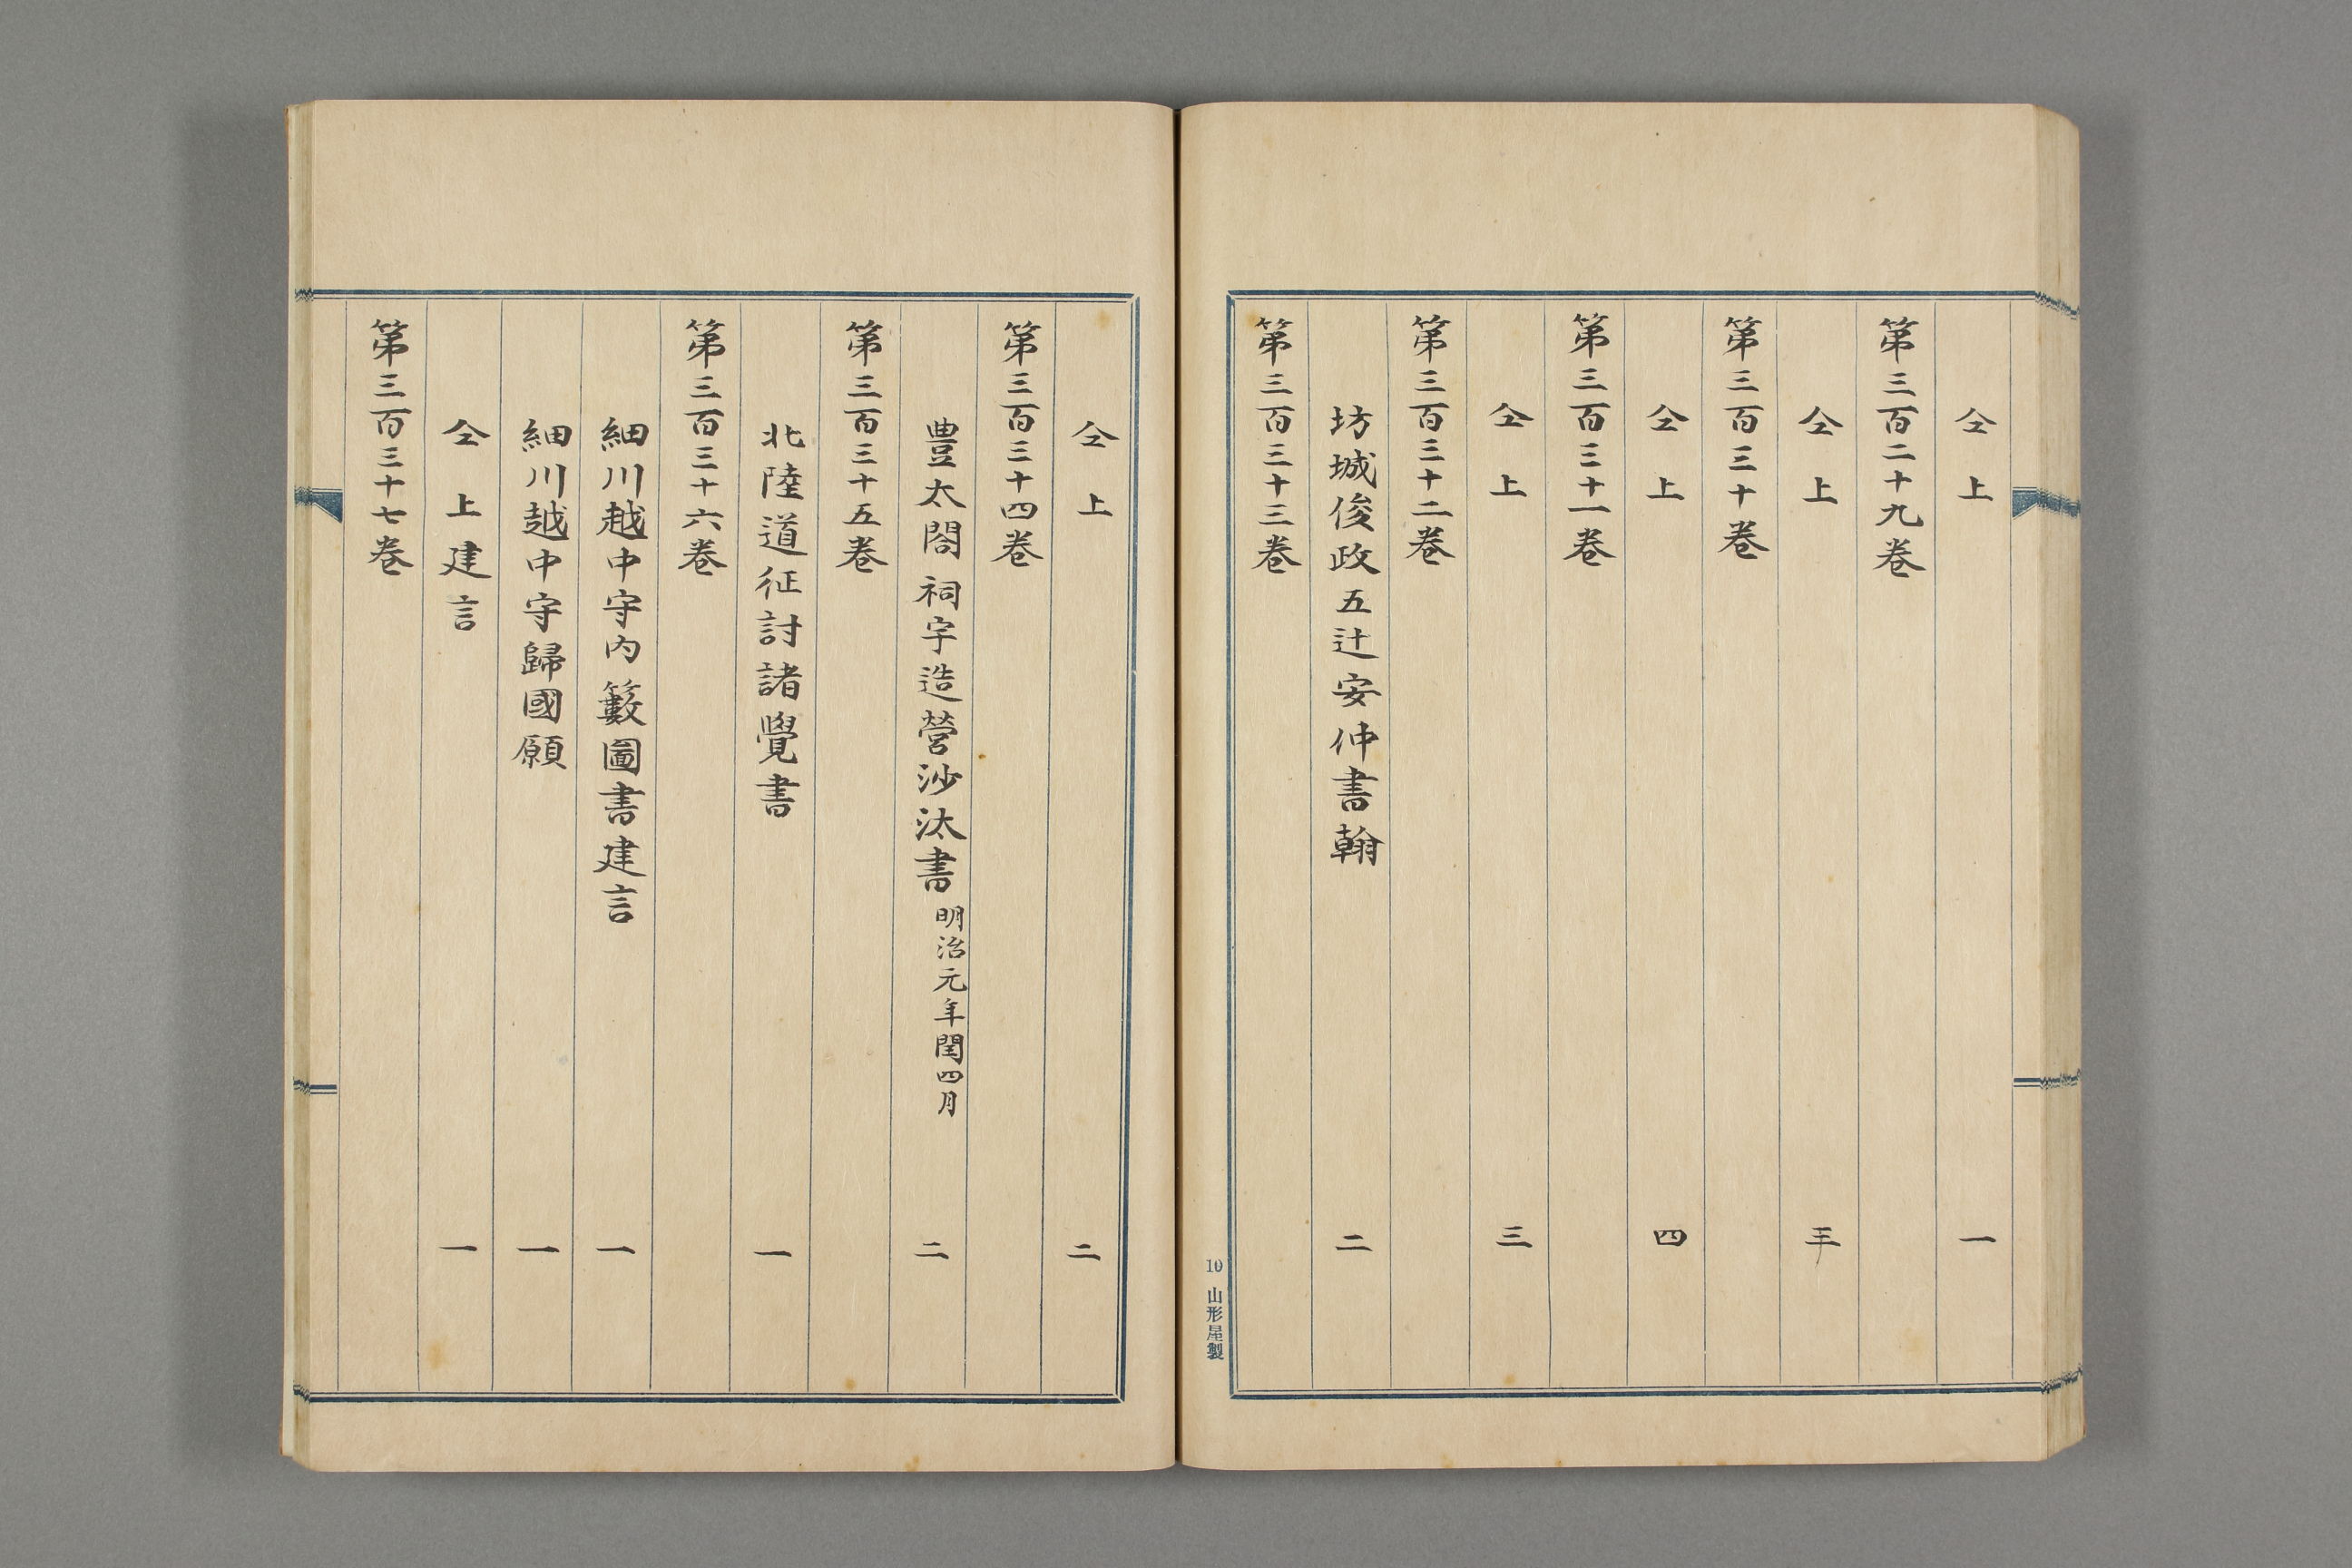 仝上 一
第三百二十九巻
仝上 三
第三百三十巻
仝上 四
第三百三十一巻
仝上 三
第三百三十二巻
坊城俊政五辻安仲書翰 二
第三百三十三巻
10 山形屋製
仝上 二
第三百三十四巻
豊太閤祠宇造營沙汰書 明治元年閏四月 二
第三百三十五巻
北陸道征討諸覺書 一
第三百三十六巻
細川越中守内籔圖書建言 一
細川越中守歸國願 一
仝上建言 一
第三百三十七巻